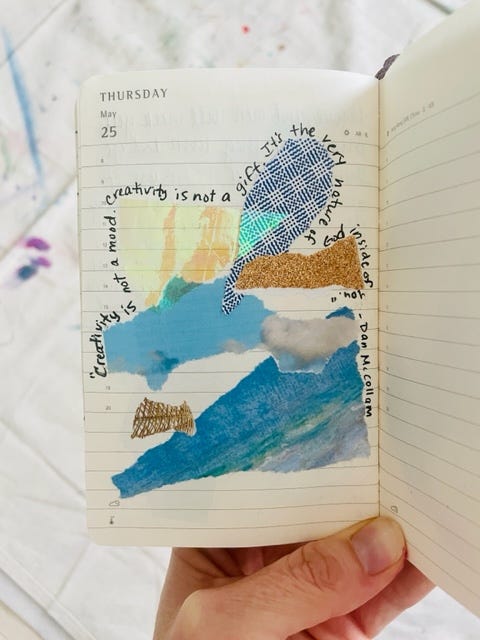 THURSDAY
May
25
"Creativity is not a mood. creativity is not a gift. It's the very nature of God inside of you." - Dan McCollam